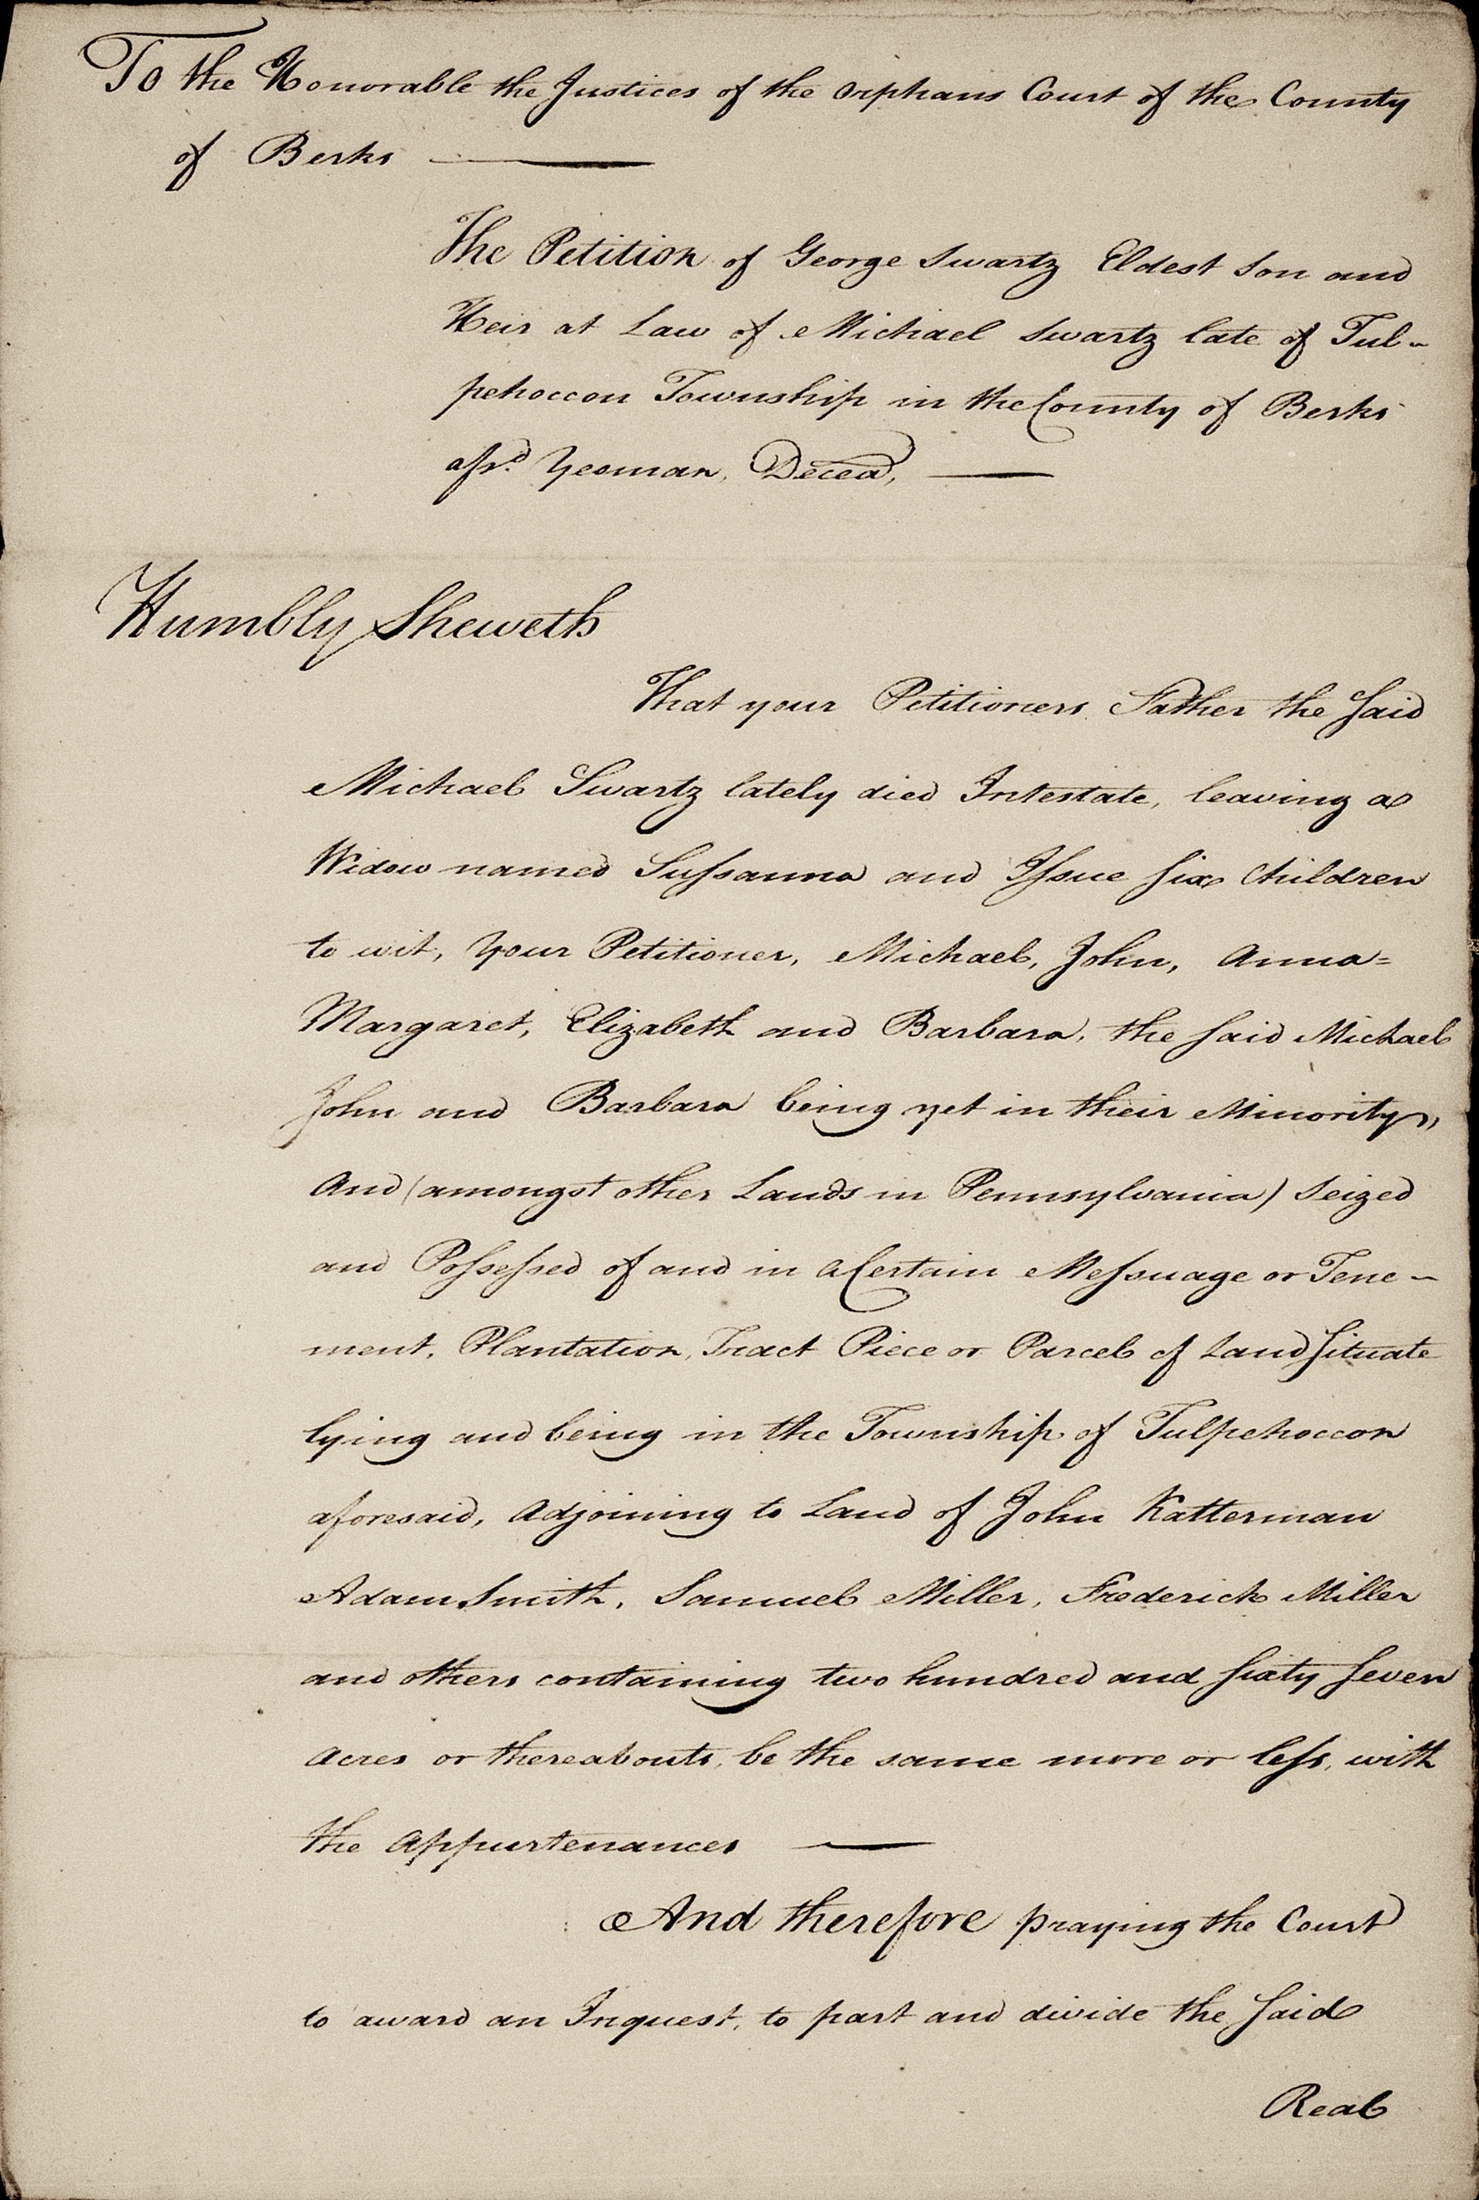 To the Honorable the Justices of the Orphans Court of the County
of Berks
The Petition of George Swartz Eldest Son and
Heir at Law of Michael Swartz late of Tul-
pehoccon Township in the County of Berks
afsd. Yeoman, Deced,
Humbly Sheweth
That your Petitioners Father the said
Michael Swartz lately died Intestate, leaving a
Widow named Sussanna and Issue six Children
to wit, Your Petitioner, Michael, John, Anna=
Margaret, Elizabeth and Barbara, the said Michael
John and Barbara being yet in their Minority,
And (amongst other Lands in Pennsylvania) Seized
and Possessed of and in a Certain Messuage or Tene-
ment, Plantation, Tract Piece or Parcel of Land Situate
lying and being in the Township of Tulpehoccon
aforesaid, Adjoining to Land of John Katterman
Adam Smith, Samuel Miller, Frederick Miller
and others containing two hundred and sixty seven
Acres or thereabouts, be the same more or less, with
the Appurtenances
And therefore praying the Court
to award an Inquest, to part and divide the said
Real